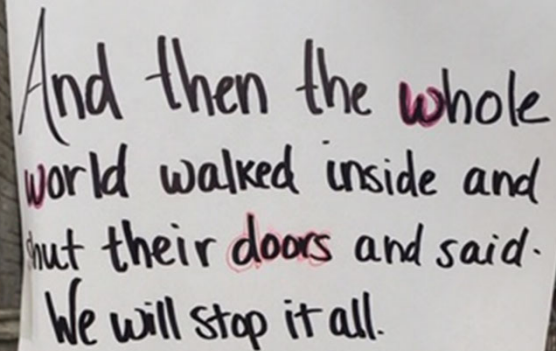 And then the whole
world walked inside and
shut their doors and said.
We will stop it all.